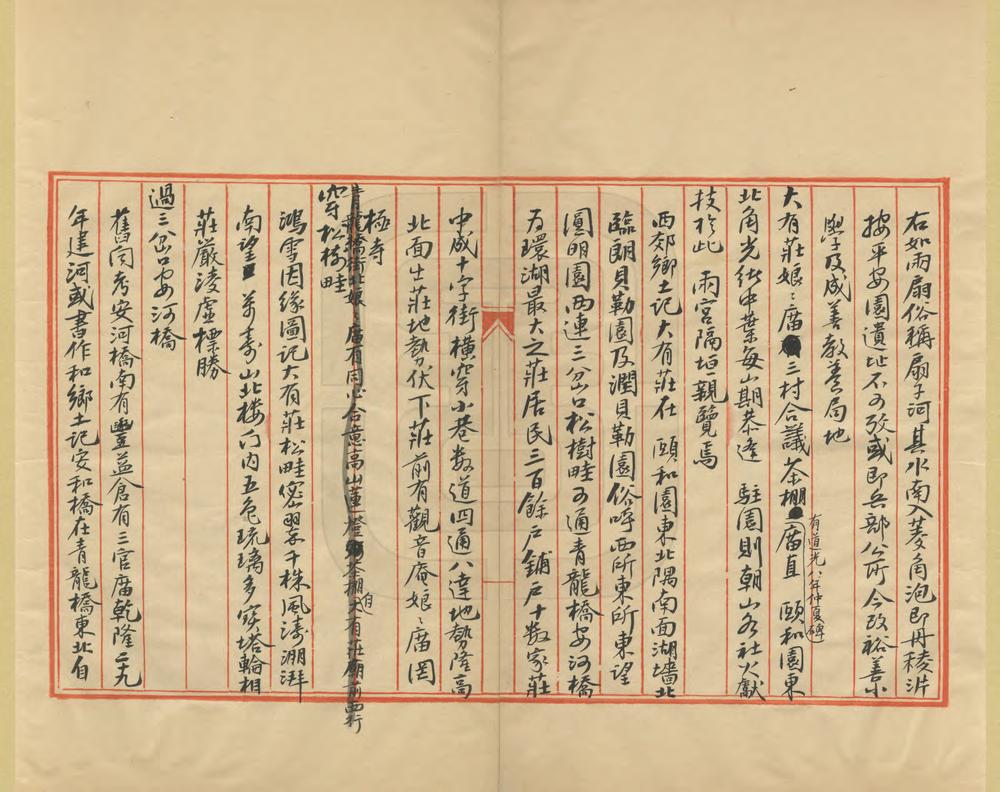 右如兩扇俗稱扇子河其水南入菱角泡即丹稜沜
按平安園遺址不可攷或即兵部公所今改裕善小
熙子及成善教養局地
大有莊娘〻庿三村合議茶棚庿直 頤和園東
有道光八年仲夏碑
北角光緒中葉每山期恭逢 駐園則朝山各社火獻
技於此 兩宮隔垣親覽焉
西郊鄉土記大有莊在 頤和園東北隅南面湖墻北
臨朗貝勒園及潤貝勒園俗呼西所東所東望
圓明園西連三岔口松樹畦可通青龍橋安河橋
為環湖最大之莊居民三百餘戶鋪戶十數家莊
中成十字街橫穿小巷數道四通八達地勢隆高
北面出莊地勢伏下莊前有觀音庵娘〻庿罡
極寺
青龍橋街北娘〻庿有同心合意高山萬燈茶棚
自大有莊庿前西行
穿松樹畦
鴻雪因緣圖記大有莊松畦密翠千株風濤淜湃
南望 萬壽山北樓門內五色琉璃多寶塔輪相
莊嚴淩虛標勝
過三岔口安河橋
舊聞考安河橋南有豐益倉有三官庿乾隆二十九
年建河或書作和鄉土記安和橋在青龍橋東北自